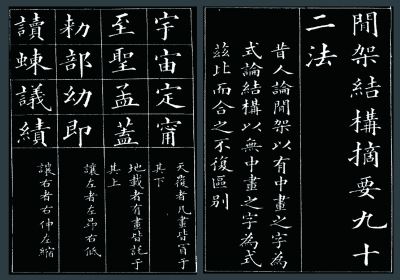 間架結構摘要九十
二法
昔人論間架以有中畫之字為
式論結構以無中畫之字為式
茲比而合之不復區別
宇宙定甯
天覆者凡畫皆冒于
其下
至聖孟蓋
地載者有畫皆託于
其上
勅部幼即
讓左者左昂右低
讀蝀議績
讓右者右伸左縮